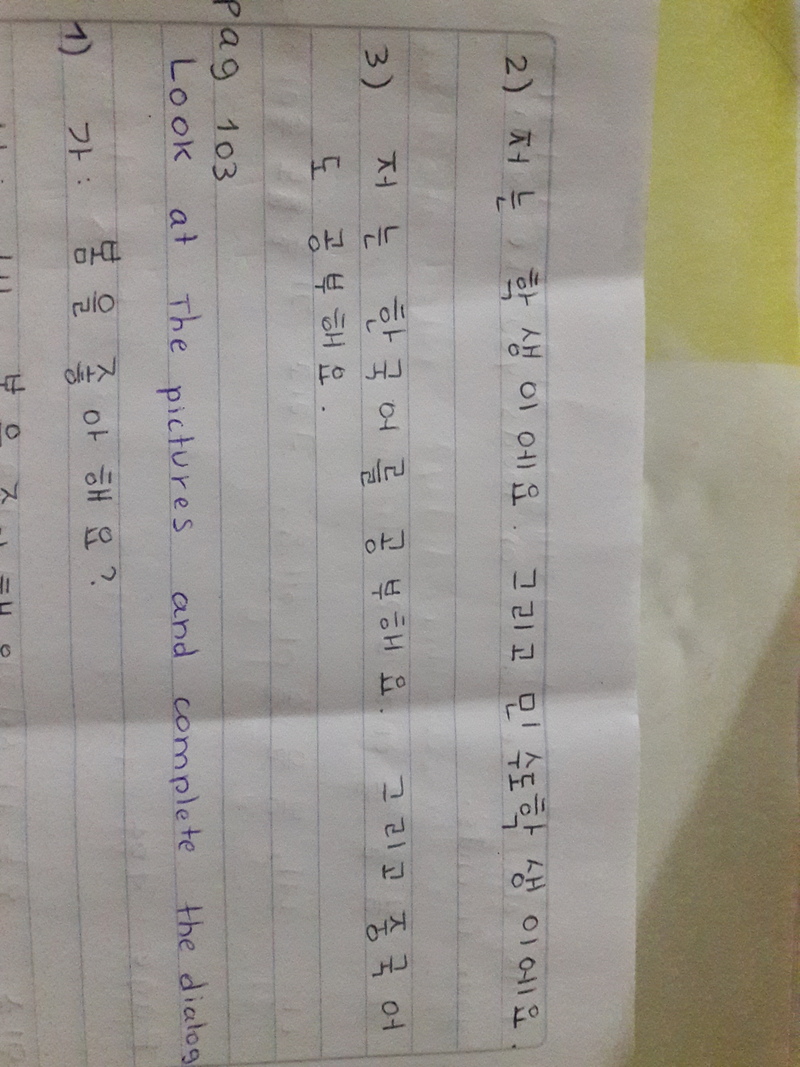 2) 저는 학생이에요. 그리고 민수도학생이에요.
3) 저는 한국어를 공부해요. 그리고 중국어
도 공부해요.
pag 103
Look at The pictures and complete the dialog
1) 가: 봄을 좋아해요?